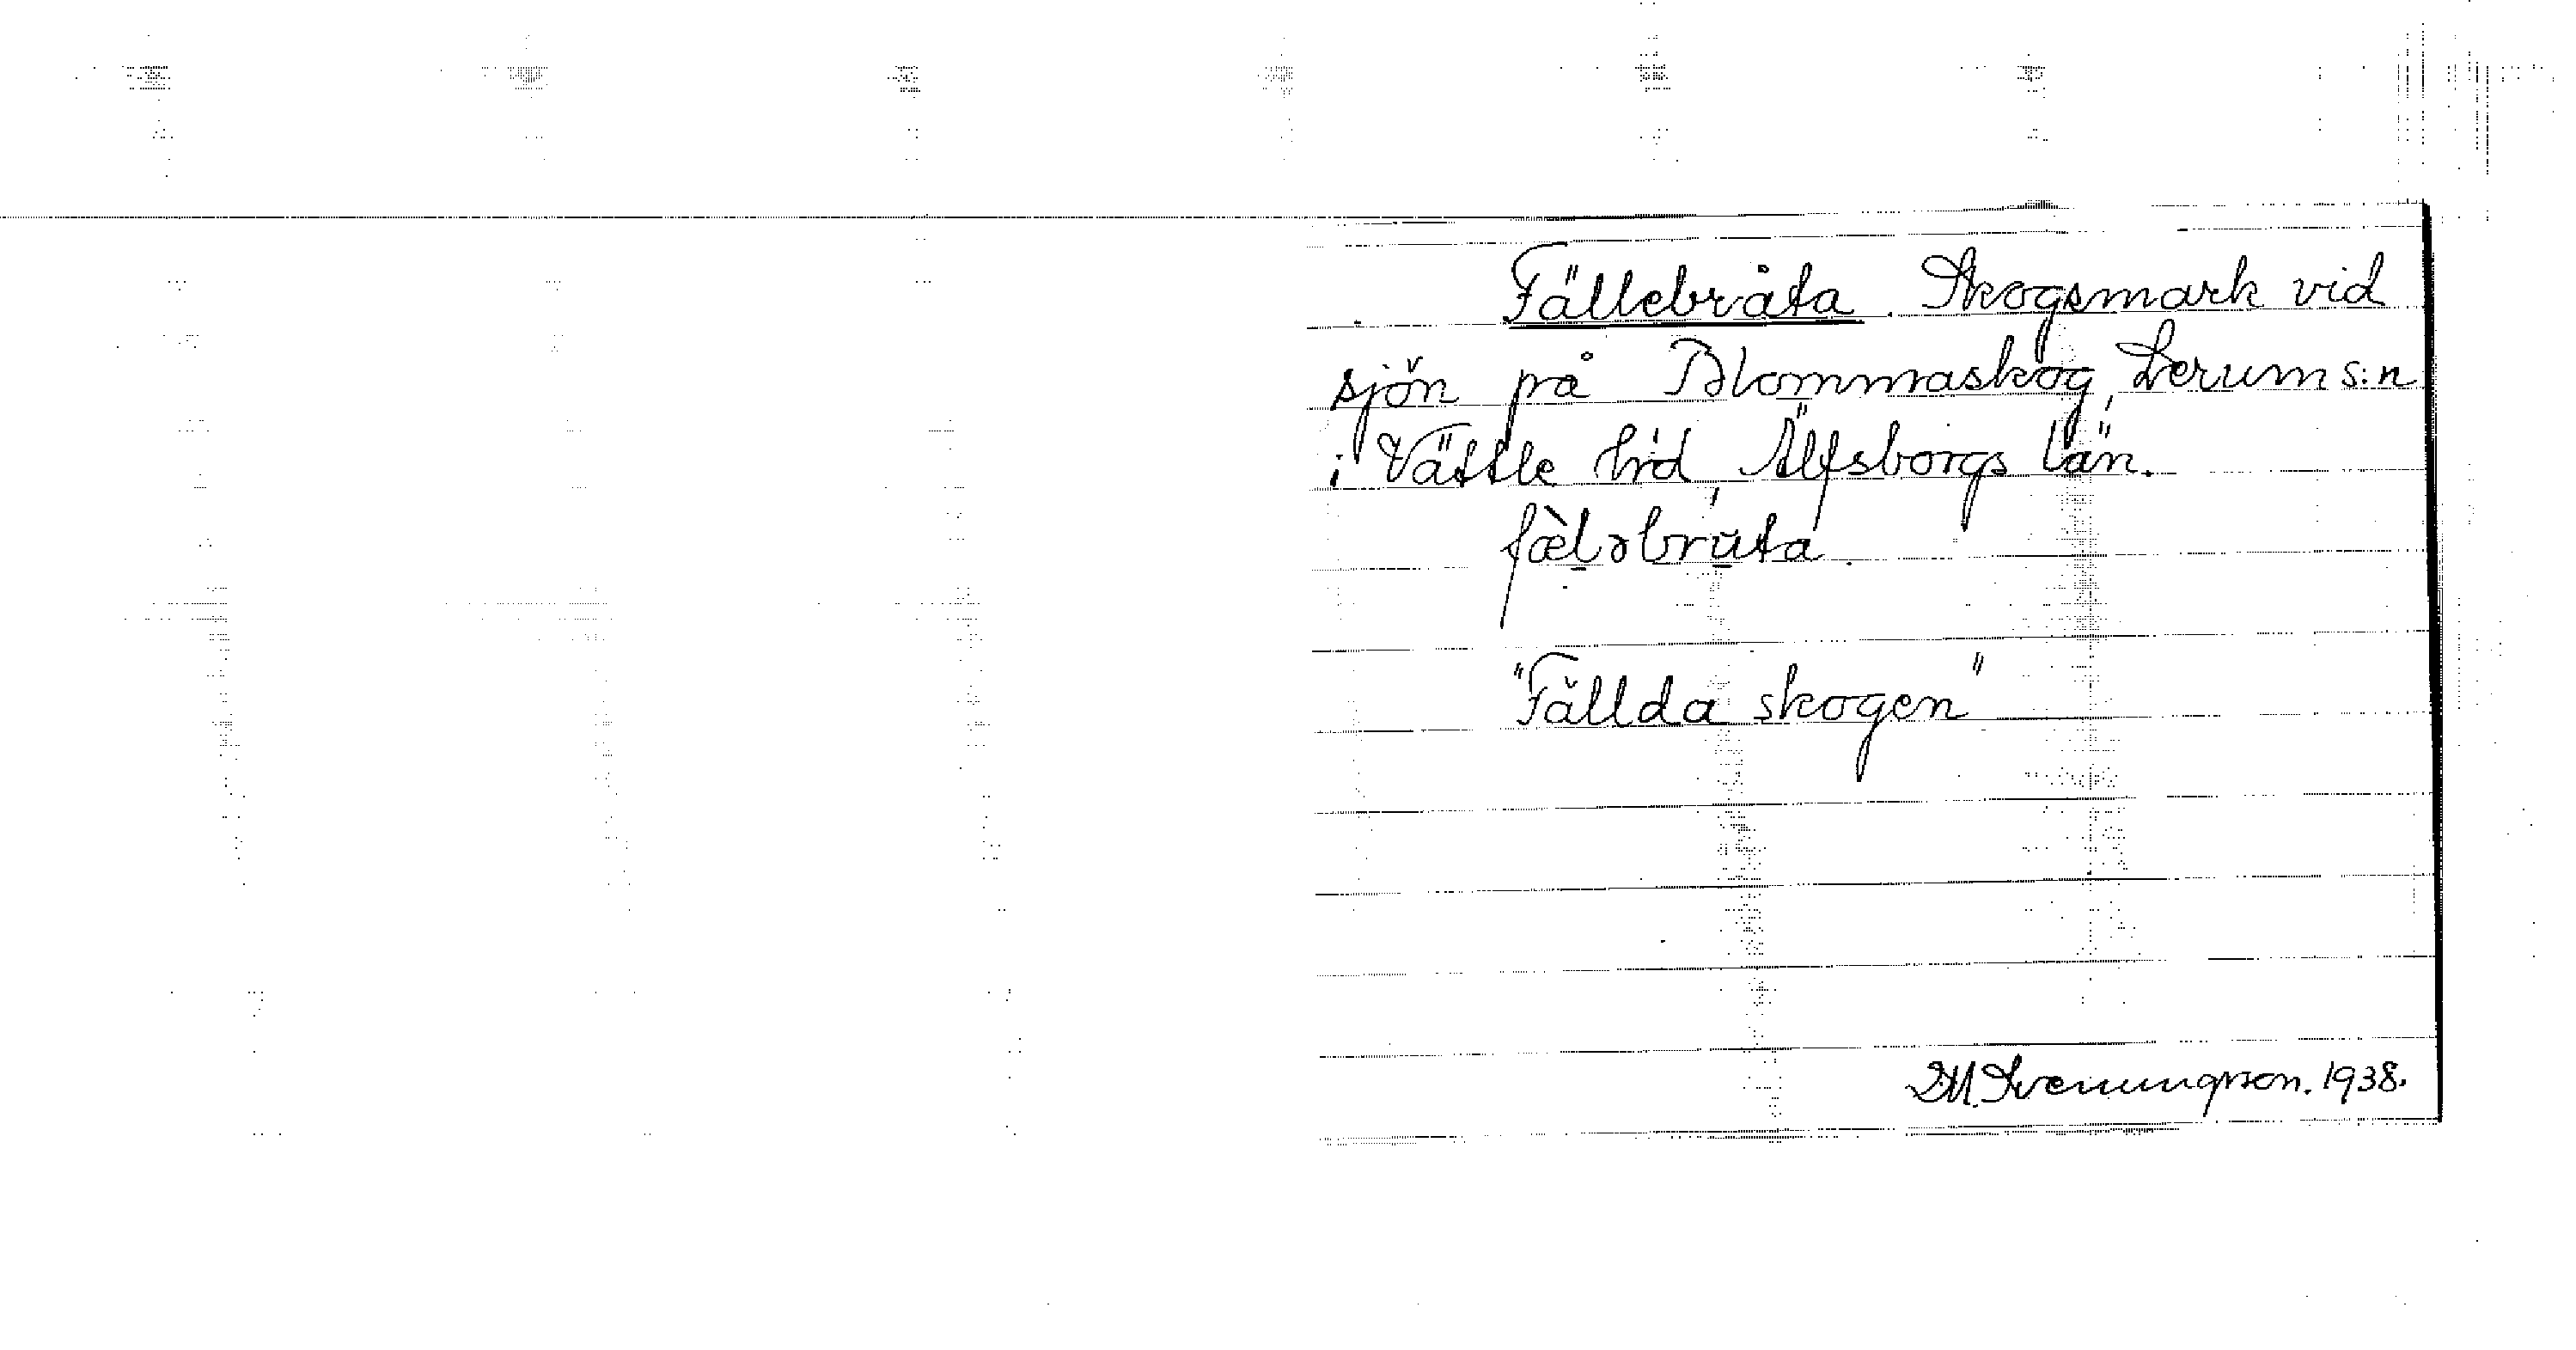 Fällebråta. Skogsmark vid
sjön på Blommaskog, Lerum s:n
i Vättle hrd, Älfsborgs län.
fæ̀ləbrùta
"Fällda skogen"
D.M. Svenungsson. 1938.